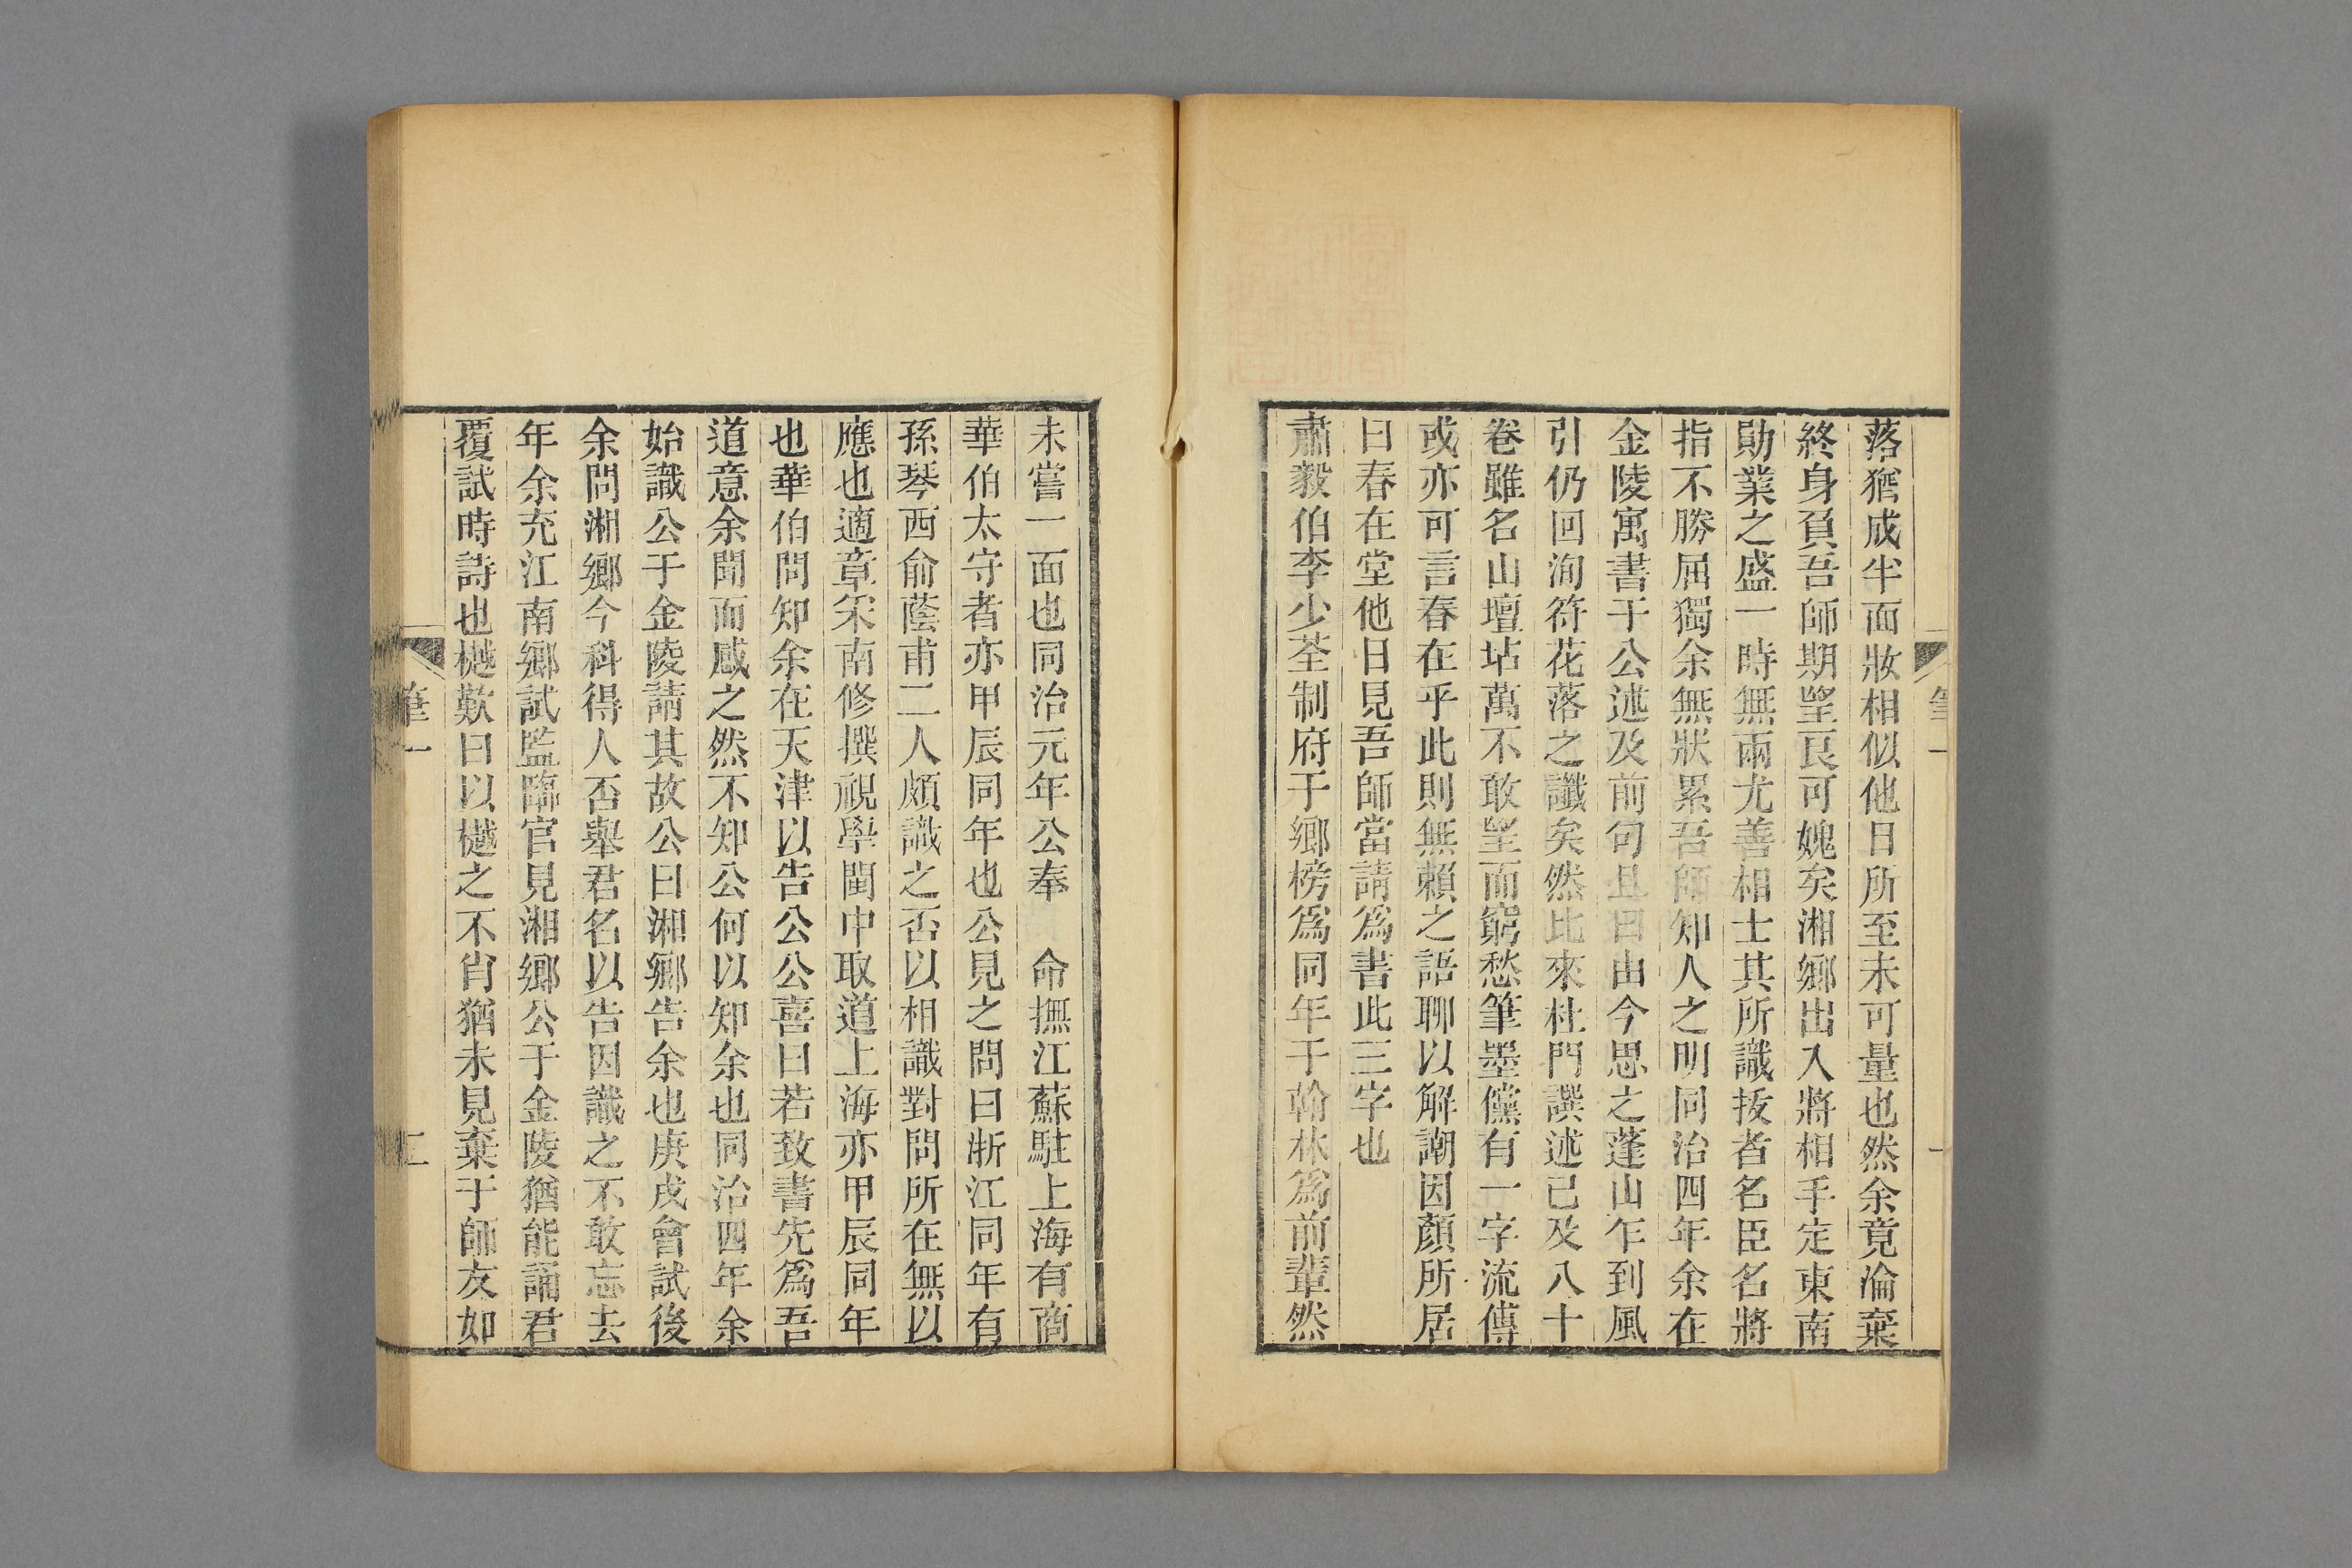 落猶成半面妝相似他日所至未可量也然余竟淪棄
終身負吾師期望良可媿矣湘鄉出入將相手定東南
勛業之盛一時無兩尤善相士其所識拔者名臣名將
指不勝屈獨余無狀累吾師知人之明同治四年余在
金陵寓書于公述及前句且曰由今思之蓬山乍到風
引仍回洵符花落之讖矣然比來杜門譔述已及八十
卷雖名山壇坫萬不敢望而窮愁筆墨儻有一字流傳
或亦可言春在乎此則無賴之語聊以解謿因顏所居
曰春在堂他日見吾師當請爲書此三字也
肅毅伯李少荃制府于鄉榜爲同年于翰林爲前輩然
未嘗一面也同治元年公奉　命撫江蘇駐上海有商
華伯太守者亦甲辰同年也公見之問曰浙江同年有
孫琴西俞蔭甫二人頗識之否以相識對問所在無以
應也適章采南修撰視學閩中取道上海亦甲辰同年
也華伯問知余在天津以告公公喜曰若致書先爲吾
道意余聞而感之然不知公何以知余也同治四年余
始識公于金陵請其故公曰湘鄉告余也庚戌會試後
余問湘鄉今科得人否舉君名以告因識之不敢忘去
年余充江南鄉試監臨官見湘鄉公于金陵猶能誦君
覆試時詩也樾歎曰以樾之不肖猶未見棄于師友如
筆一
二